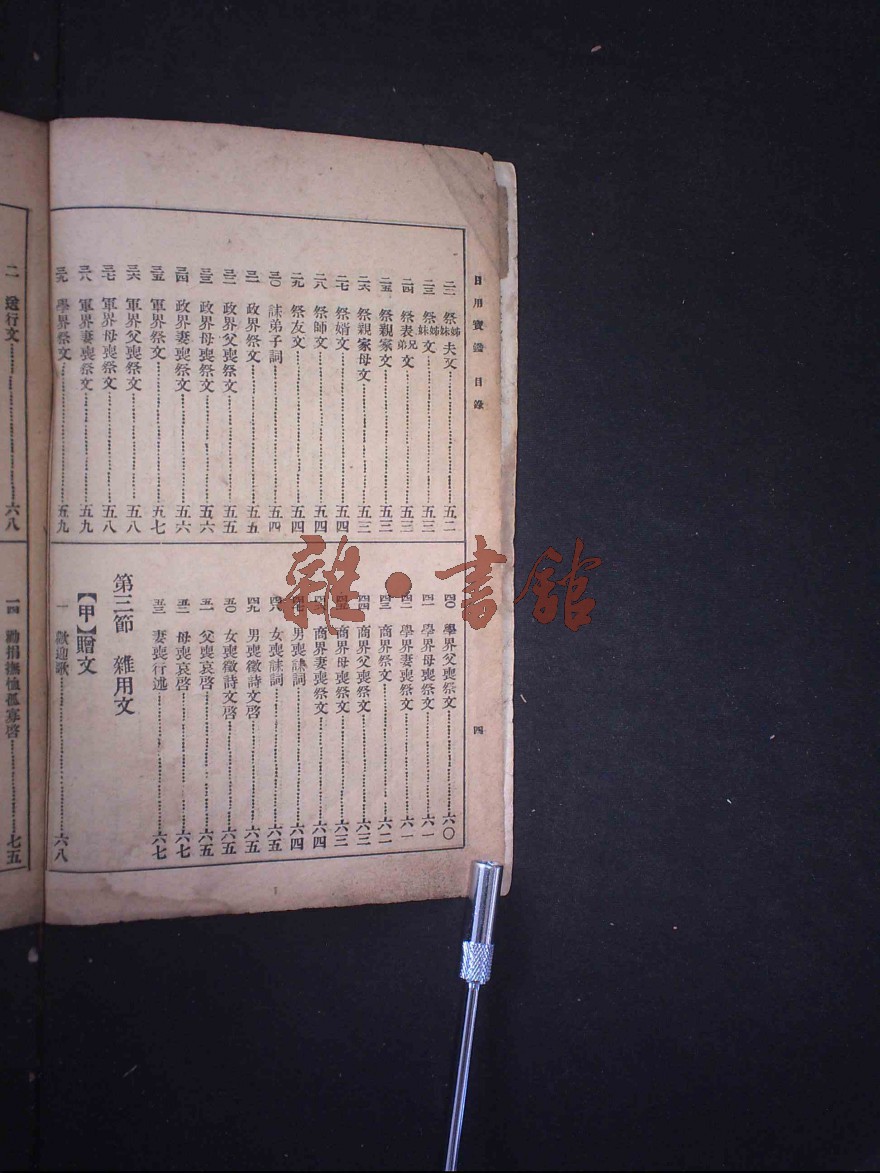 日用寶鑑 目錄 四
二二 祭姊妹夫文 五二
二三 祭姊妹文 五三
二四 祭表兄弟文 五三
二五 祭親家文 五三
二六 祭親家母文 五三
二七 祭婿文 五四
二八 祭師文 五四
二九 祭友文 五四
三〇 誄弟子詞 五四
三一 政界祭文 五五
三二 政界父喪祭文 五五
三三 政界母喪祭文 五六
三四 政界妻喪祭文 五六
三五 軍界祭文 五七
三六 軍界父喪祭文 五八
三七 軍界母喪祭文 五八
三八 軍界妻喪祭文 五九
三九 學界祭文 五九
四〇 學界父喪祭文 六〇
四一 學界母喪祭文 六一
四二 學界妻喪祭文 六一
四三 商界祭文 六二
四四 商界父喪祭文 六三
四五 商界母喪祭文 六三
四六 商界妻喪祭文 六四
四七 男喪誄詞 六四
四八 女喪誄詞 六五
四九 男喪徵詩文啓 六五
五〇 女喪徵詩文啓 六五
五一 父喪哀啓 六五
五二 母喪哀啓 六七
五三 妻喪行述 六七
第三節 雜用文
【甲】贈文
一 歡迎歌 六八
二 送行文 六八
一四 勸捐撫恤孤寡啓 七五
雜·書館